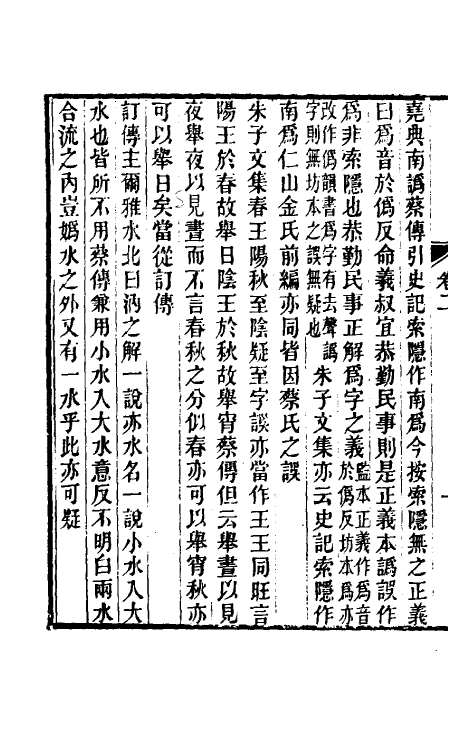 堯典南譌蔡傳引史記索隱作南爲今按索隱無之正義
曰爲音於僞反命羲叔宜恭勤民事則是正義本譌誤作
爲非索隱也恭勤民事正解爲字之義監本正義作爲音
於僞反坊本爲亦
改作僞韻書爲字有去聲譌
字則無坊本之誤無疑也朱子文集亦云史記索隱作
南爲仁山金氏前編亦同皆因蔡氏之誤
朱子文集春王陽秋至陰疑至字誤亦當作王王同旺言
陽王於春故舉日陰王於秋故舉宵蔡傳但云舉晝以見
夜舉夜以見晝而不言春秋之分似春亦可以舉宵秋亦
可以舉日矣當從訂傳
訂傳主爾雅水北曰汭之解一說亦水名一說小水入大
水也皆所不用蔡傳兼用小水入大水意反不明白兩水
合流之內豈嬀水之外又有一水乎此亦可疑
卷二